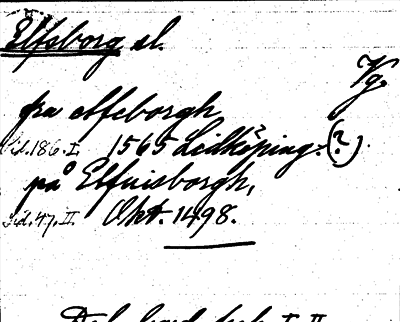 Elfsborg sl.
Vg.
fra elfeborgh
Sid. 186. I. 1565 Lidköping. (?).
på Elfuisborgh,
Sid. 47. II. Okt. 1498.
I. II.